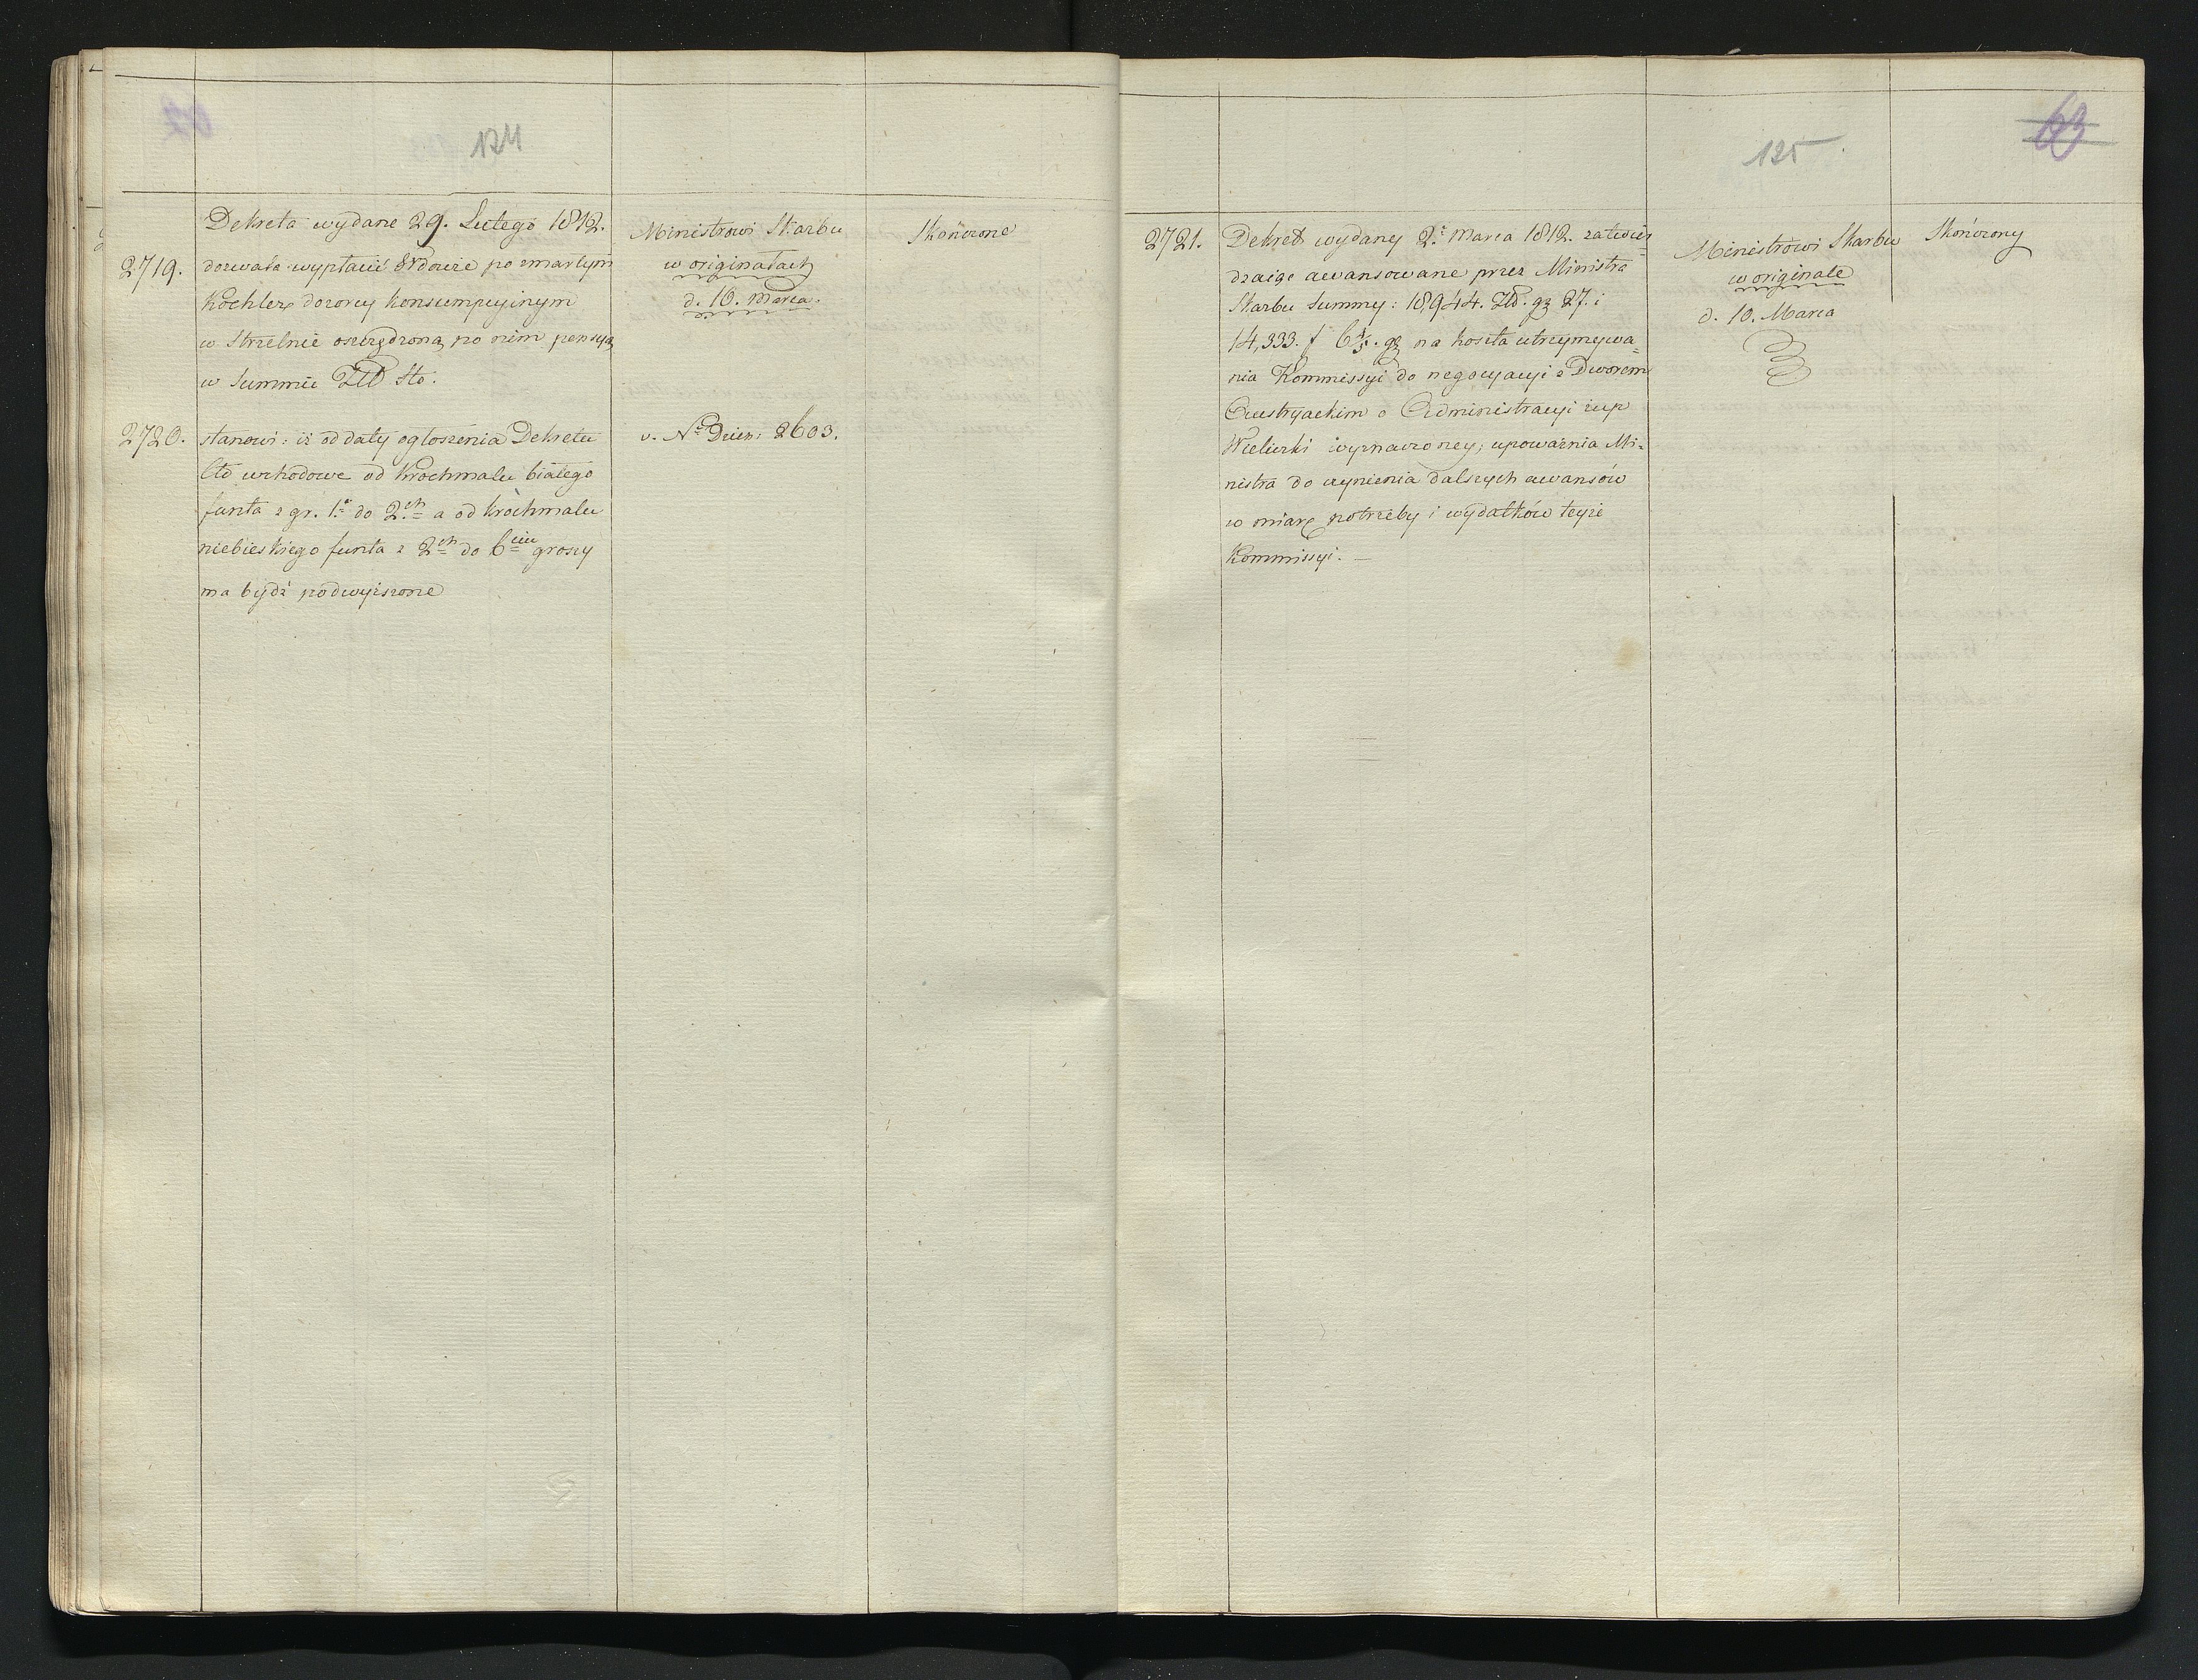 124
Dekreta wydane 29. Lutego 1812.
2719.
dozwala wypłacić Wdowie po zmarłym
Koehlerze dozorcy konsumpcyinym
w Strzelnie oszczędzoną po nim pensyą
w Summie Złł sto.
Ministrowi Skarbu
w originałach
d. 10. Marca.
Skończone
2720.
stanowi: iż od daty ogłoszenia Dekretu
Cło wchodowe od Krochmalu białego
funta z gr. 1. do 2ch a od krochmalu
niebieskiego funta z 2ch do 6ciu groszy
ma bydź podwyższone
v. No Dzien: 2603.
63
125
2721.
Dekret wydany 2. Marca 1812. zatwier=
dzaiące awansowane przez Ministra
Skarbu Summy: 18,944. Złł. gr 27. i
14,333. f 6 3/5. gr na koszta utrzymywa=
nia Kommissyi do negocyacyi z Dworem
Austryackim o Administracyi żup
Wieliczki wyznaczoney; upoważnia Mi=
nistra do czynienia dalszych awansów
w miarę potrzeby i wydatków teyże
Kommissyi. —
Ministrowi Skarbu
w originale
d. 10. Marca
Skończony